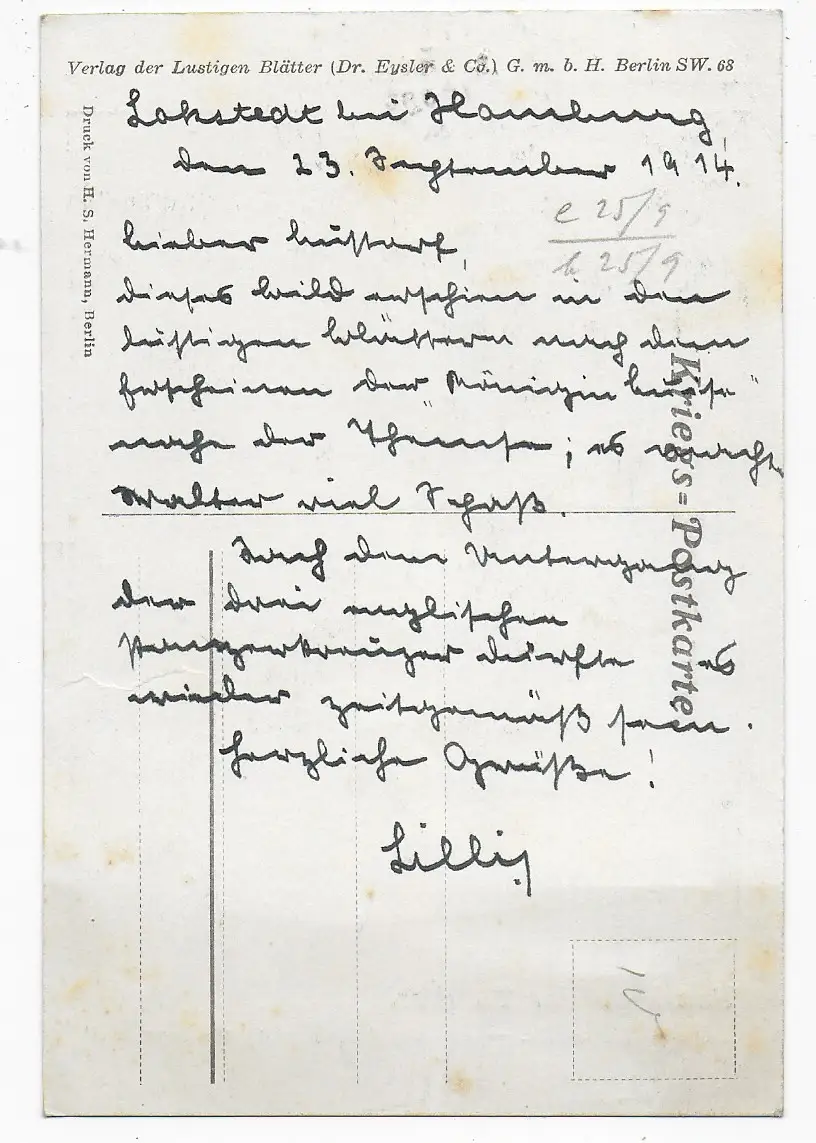 Verlag der Lustigen Blätter (Dr. Eysler & Co.) G. m. b. H. Berlin SW. 68
Druck von H. S. Hermann, Berlin
Kriegs-Postkarte
Lokstedt bei Hamburg,
den 23. September 1914.
e 25/9
b 25/9
Lieber
dieses Bild erschien in den
Lustigen Blättern nach dem
Erscheinen der „Königin Luise"
nahe der Themse; es macht
Walter viel Spaß.
Nach dem Untergang
der drei englischen
Panzerkreuzer dürfte es
wieder zeitgemäß sein.
Herzliche Grüße!
Lilli